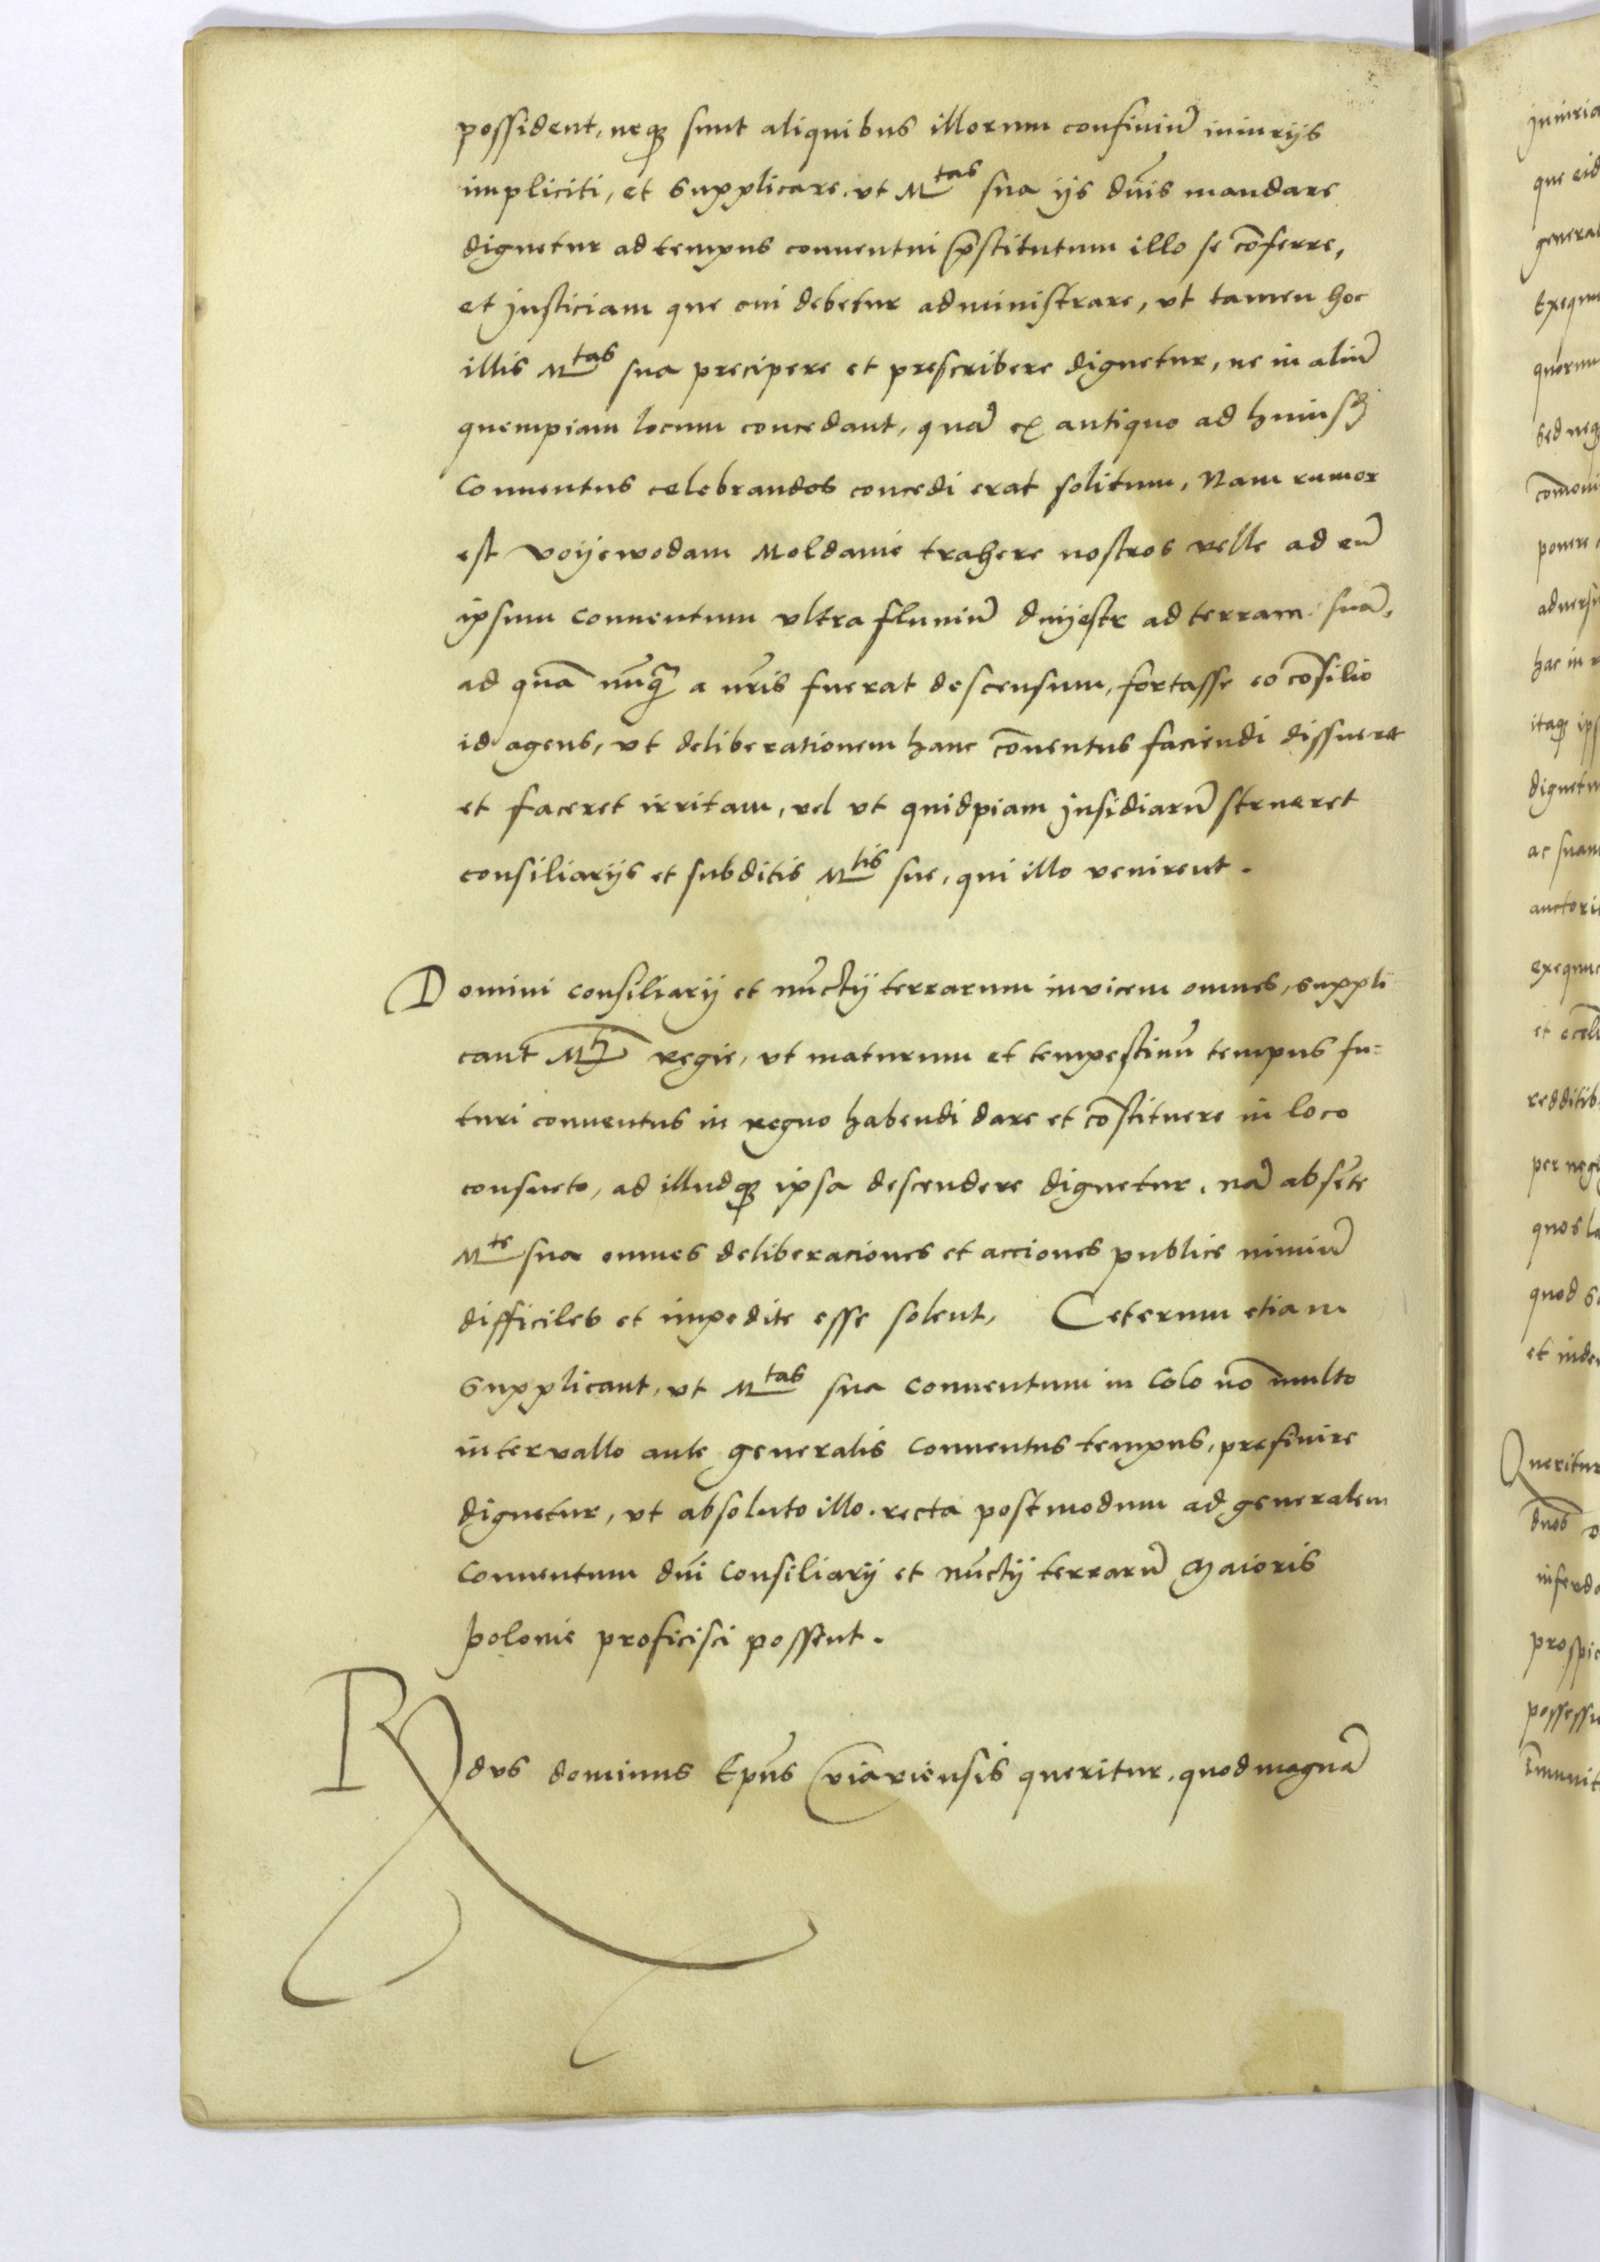 possident, neq₃ sunt aliquibus illorum confiniū iniurijs
impliciti, et supplicare, vt M^tas sua ijs dn̄is mandare
dignetur ad tempus conuentui p̄stitutum illo se cōferre,
et justiciam que cui debetur administrare, vt tamen hoc
illis M^tas sua precipere et prescribere dignetur, ne in aliū
quempiam locum concedant, quā ex antiquo ad huiusꝫ
Conuentus celebrandos concedi erat solitum, Nam rumor
est Voijewodam Moldauie trahere nostros velle ad eū
ipsum conuentum vltra fluuiū dnijestr ad terram suā,
ad quā nūq̄ a nr̄is fuerat descensum, fortasse eo cōsilio
id agens, vt deliberationem hanc cōuentus faciendi dissueret
et faceret irritam, vel vt quidpiam jnsidiarū strueret
consiliarijs et subditis M^tis sue, qui illo venirent.
Domini consiliarij et nūctij terrarum inuicem omnes, suppli
cant M^ti regie, vt maturum et tempestiuū tempus fu=
turi conuentus in regno habendi dare et cōstituere in loco
consueto, ad illudq₃ ipsa descendere dignetur, nā absēte
M^te sua omnes deliberaciones et acciones publice nimiū
difficiles et impedite esse solent, Ceterum etiam
supplicant, vt M^tas sua conuentum in Colo nō multo
interuallo ante generalis conuentus tempus, prefinire
dignetur, vt absoluto illo. recta postmodum ad generalem
conuentum dn̄i consiliarij et nūctij terrarū Maioris
polonie proficisci possent.
Rdus dominus Ep̄us Cuiauiensis queritur, quod magnā
jniuria
que eid
general
quorum
sed neq₃
ponere
aduersu
hac in
itaq₃ ips
dignetur
ac suam
auctori
exequu
redditib
per neg
quos la
quod
et inde
Queritur
duos
prospic
possessi